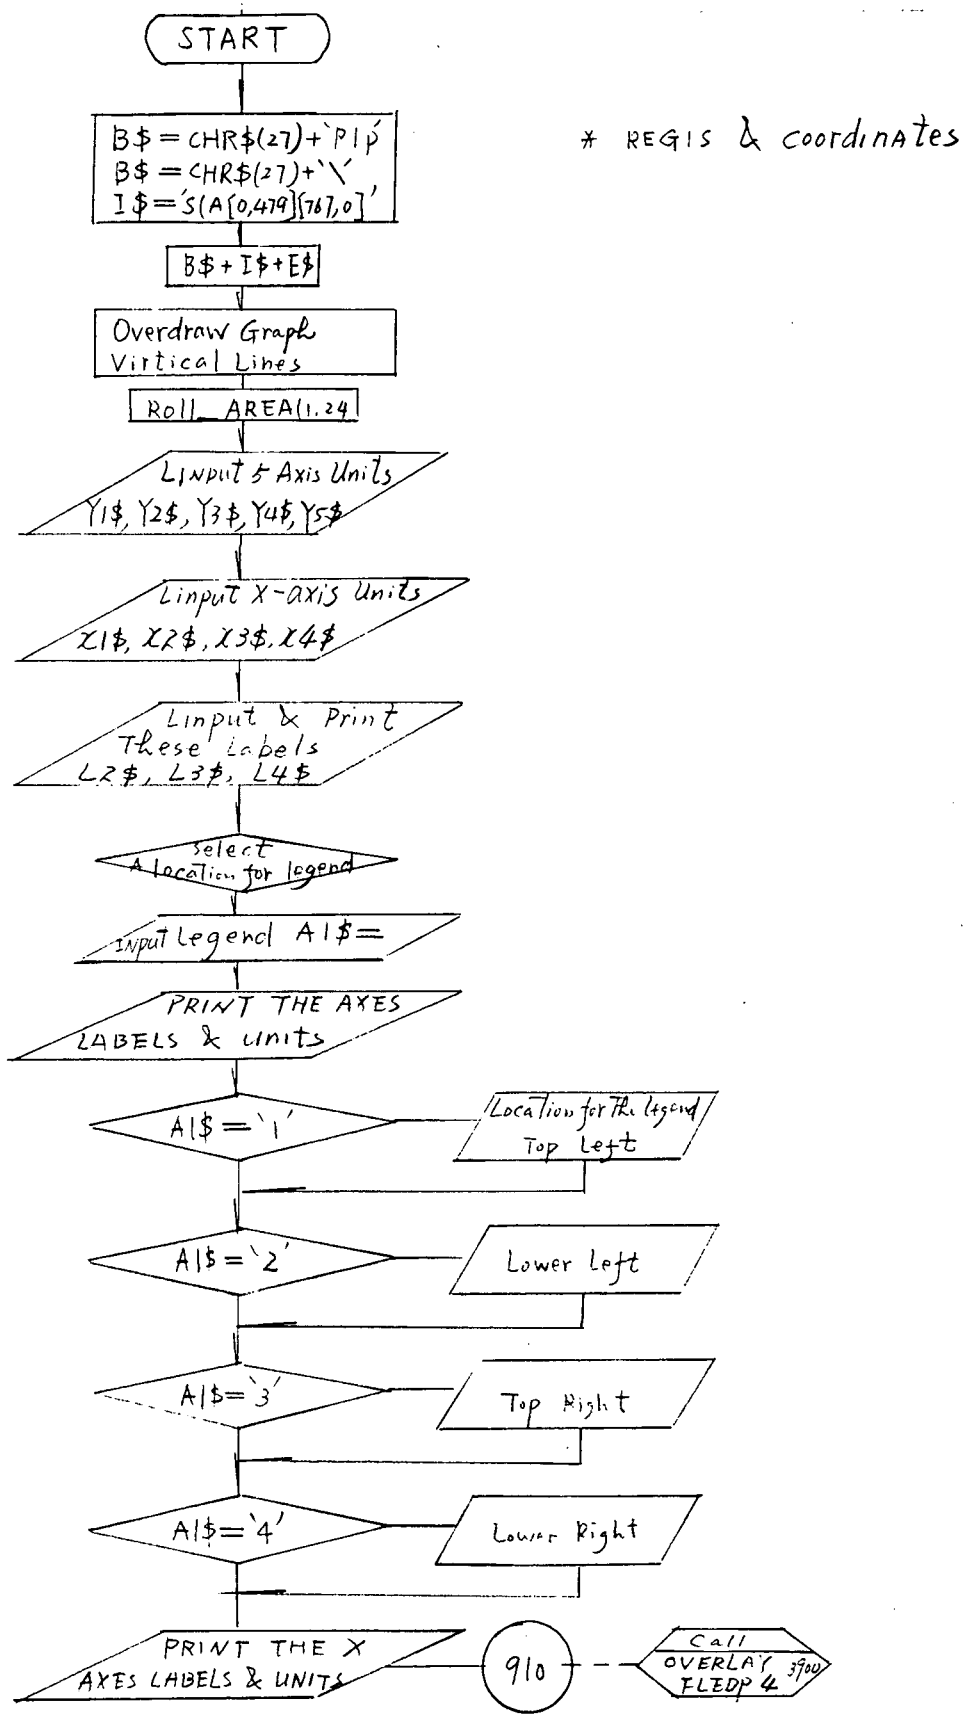 START
* REGIS & coordinates
B$ = CHR$(27)+'P1p'
B$ = CHR$(27)+'\'
I$ = 'S(A[0,479][767,0]'
B$ + I$ + E$
Overdraw Graph
Virtical Lines
Roll_AREA(1.24
LINput 5 Axis Units
Y1$, Y2$, Y3$, Y4$, Y5$
Linput X-axis Units
X1$, X2$, X3$, X4$
Linput & Print
These Labels
L2$, L3$, L4$
Select
A location for legend
INput Legend A1$=
PRINT THE AXES
LABELS & units
A1$='1'
Location for The legend
Top Left
A1$='2'
Lower Left
A1$='3'
Top Right
A1$='4'
Lower Right
PRINT THE X
AXES LABELS & UNITS
910
Call
OVERLAY 3900
FLEDP 4